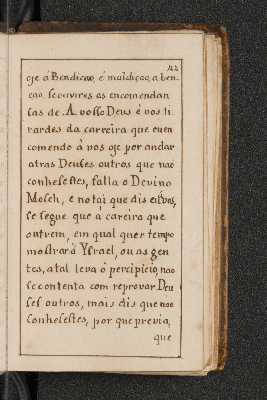 42
oje á Bendicaõ, é maldiçaõ, a ben-
caõ, se ouvires as encomendan
sas de A. vosso Deus é vos ti
rardes da carreira que euen
comendo à vos oje por andar
atras Deuses outros que naõ
conhesestes, falla o Devino
Moseh, e notai que dis
se segue que á careira que
outrem, em qual quer tempo
mostrará Ysrael, ou as gen
tes, a tal leva ô percipicio, naõ
se contenta com reprovar Deu
ses outros, mais dis que naõ
conhesestes, por que previa,
que